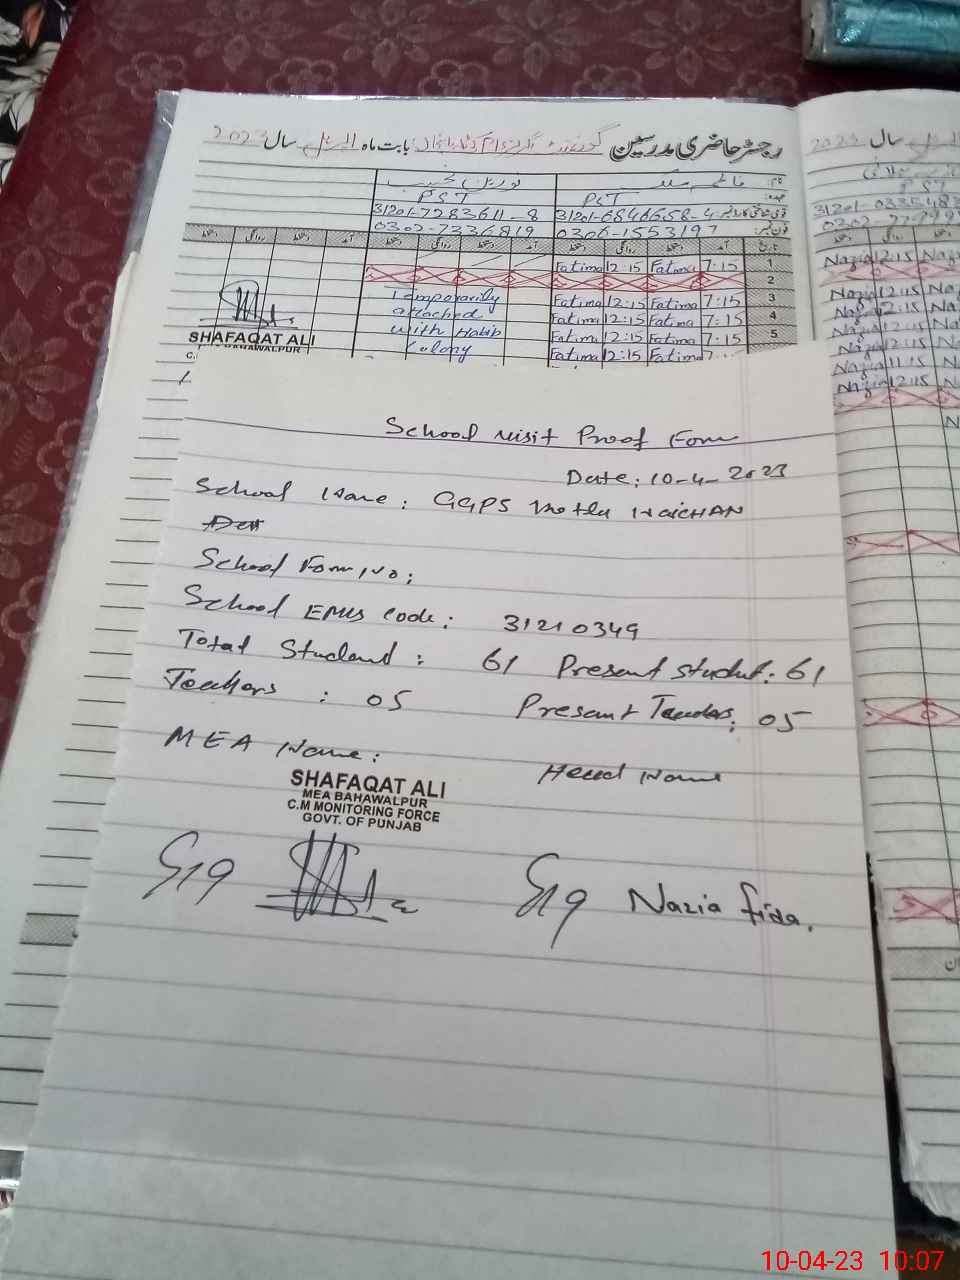 رجسٹر حاضری مدرسین گورنمنٹ گرلز بابت ماہ اپریل سال 2023
نام
PST PST
31201-7283611-8 31201-6846658-4
0302-7336819 0306-1553197
دستخط روانگی دستخط آمد دستخط روانگی دستخط آمد دستخط روانگی دستخط آمد تاریخ
Fatima 12:15 Fatima 7:15 1
2
Temporarily Fatima 12:15 Fatima 7:15 3
attached Fatima 12:15 Fatima 7:15 4
with Habib Fatima 12:15 Fatima 7:15 5
Colony Fatima 12:15 Fatima 7:
SHAFAQAT ALI
BAHAWALPUR
C.
سال 2023
PST
31201-0335483
Nazia 12:15 Na
Nazia 12:15 Na
Nazia 12:15
Nazia 12:15
Nazia 12:15
Nazia 11:15
Nazia 12:15
School visit Proof Form
Date: 10-4-2023
School Name: GGPS Motla NaicHAN
School Form No:
School EMIS Code: 31210349
Total Student: 61 Present student: 61
Teachers: 05 Present Teachers: 05
MEA Name: Head Name
SHAFAQAT ALI
MEA BAHAWALPUR
C.M MONITORING FORCE
GOVT. OF PUNJAB
Sig Sig Nazia fida.
10-04-23 10:07